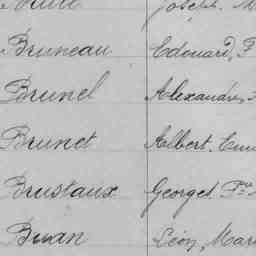 Joseph, M
Bruneau Edouard, F
Brunel Alexandre,
Brunet Albert, Em
Brustaux Georges, Fr
Bruan Léon, Mari